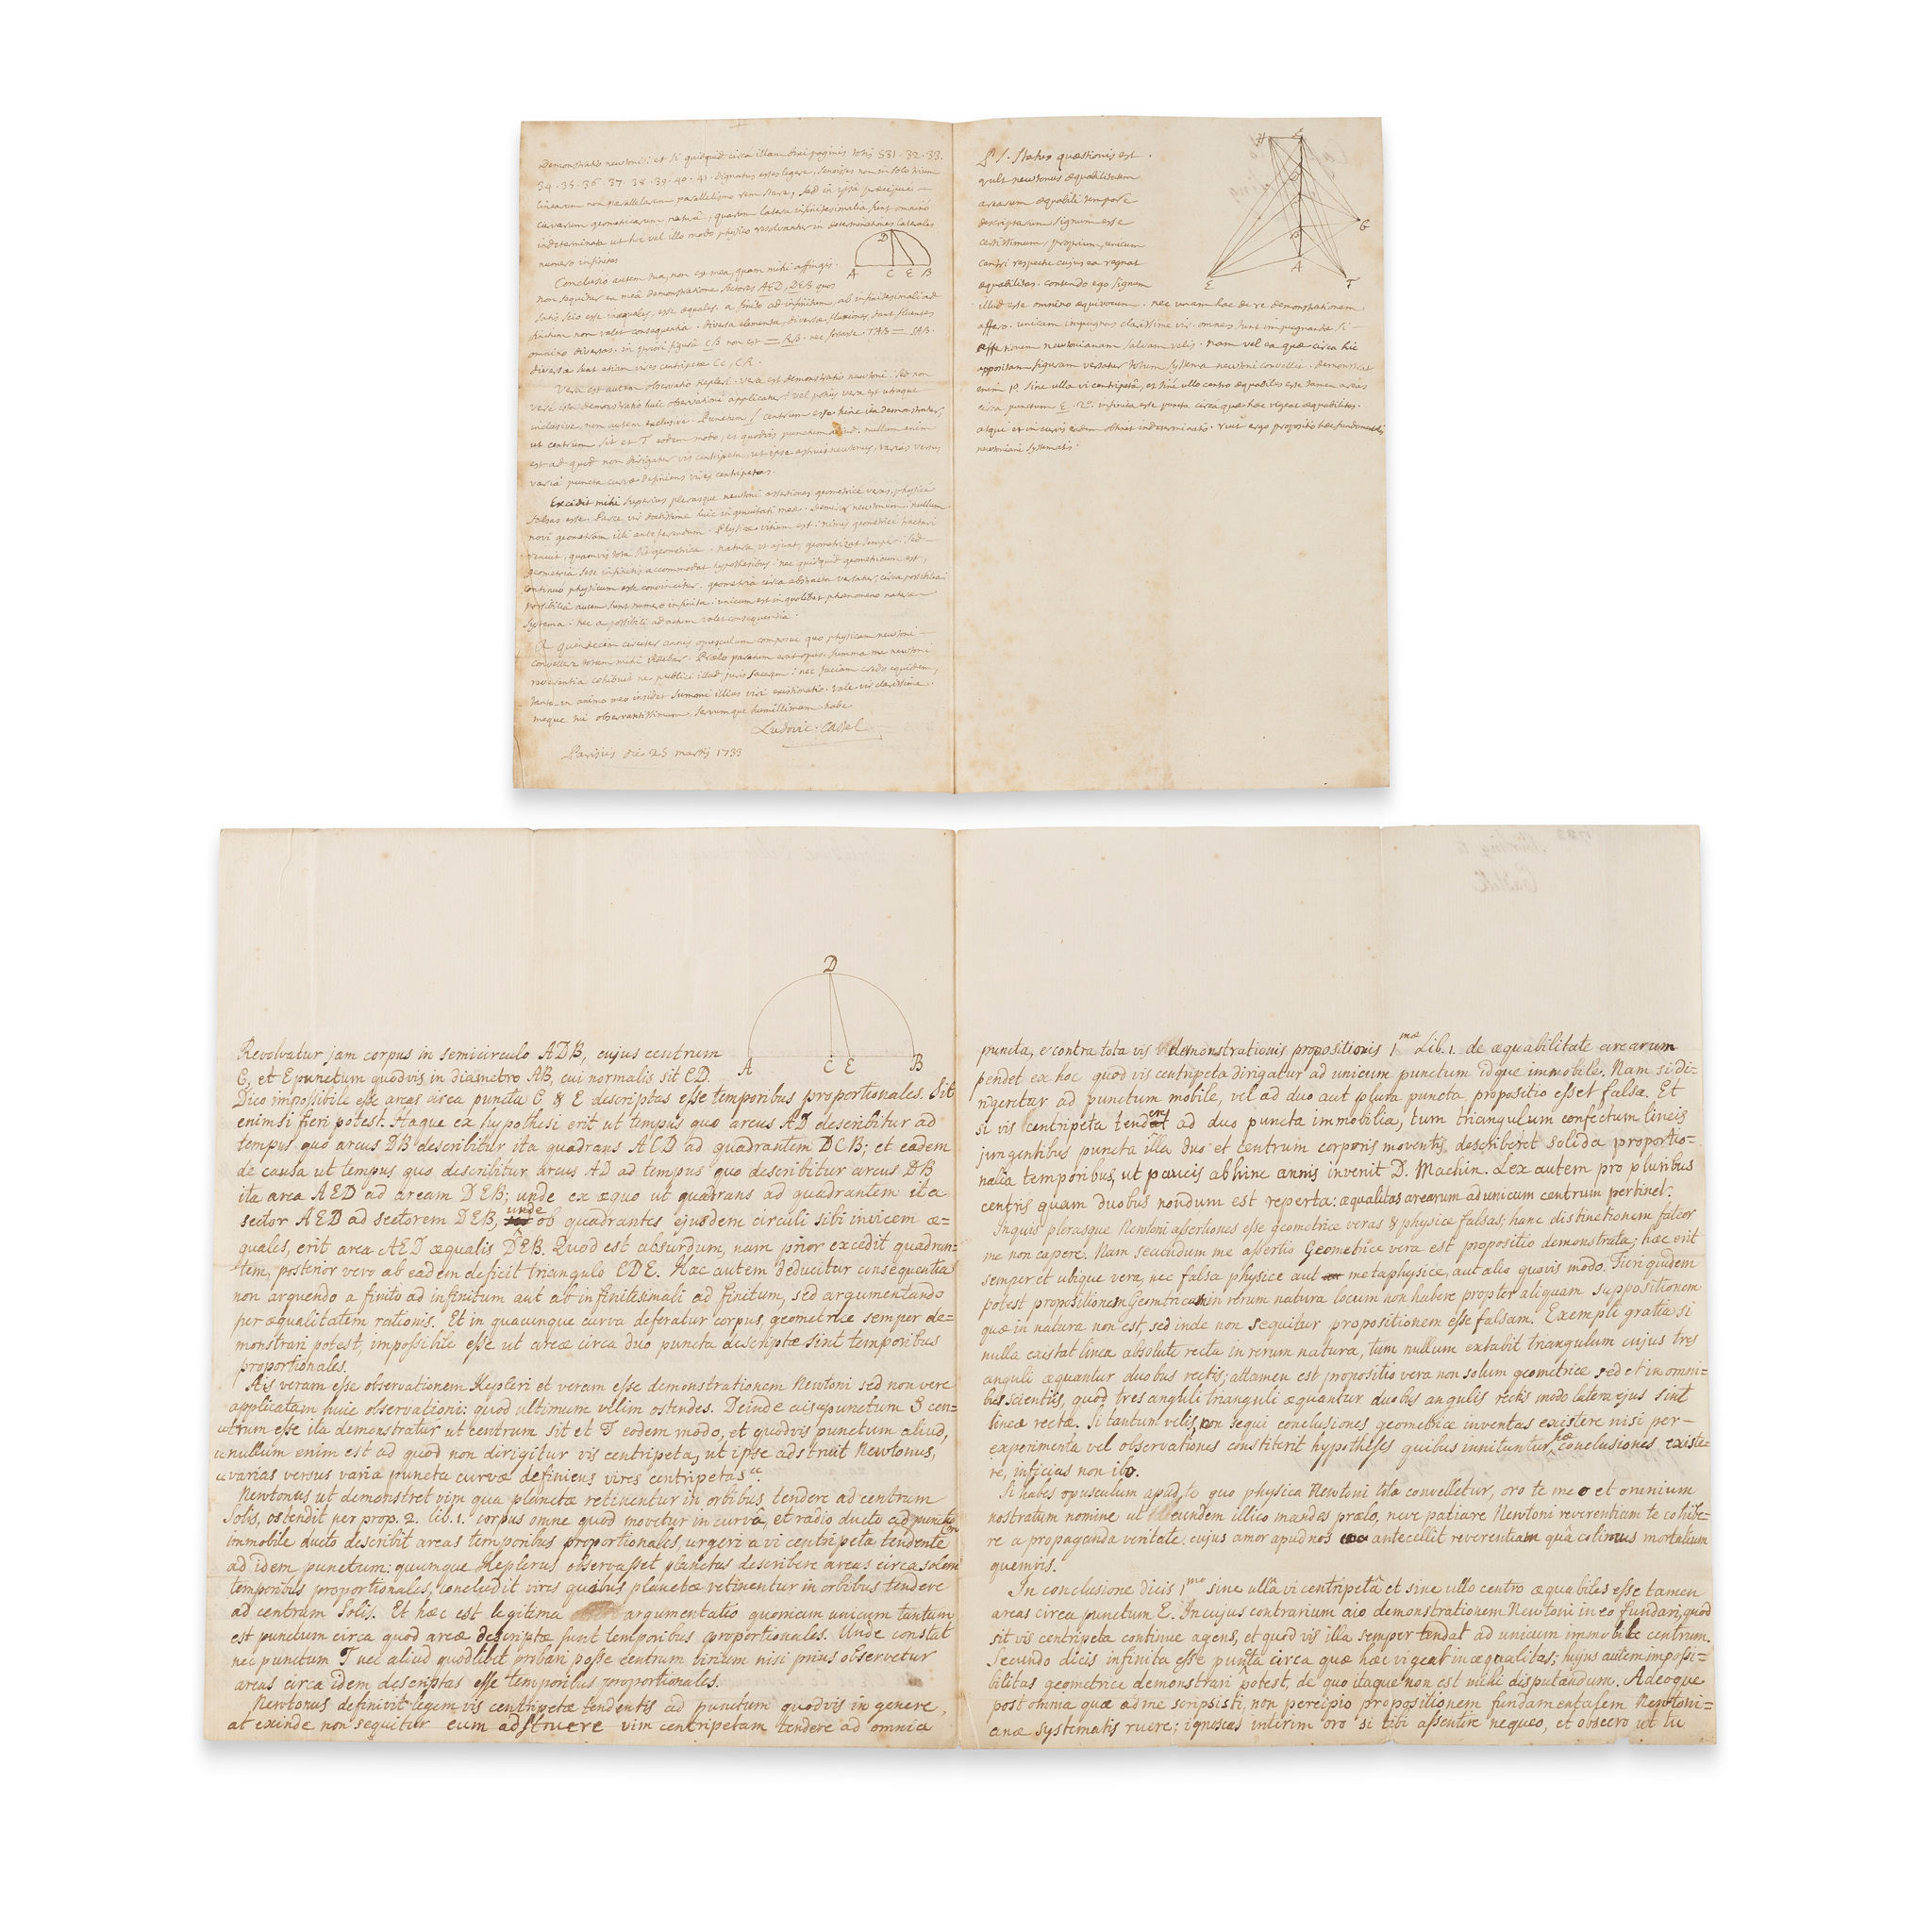 Demonstratio newtoni: et si quidquid circa illam brui paginis totis 531. 32. 33.
34. 35. 36. 37. 38. 39. 40. 41. dignatus esses legere, sensisses non in solo trium
linearum non parallelarum parallelismo rem stare, sed in ipsâ præcipuè
curvarum geometricarum naturâ, quarum latera infinitesimalia sunt omnino
indeterminata ut hoc vel illo modo physico resolvantur in determinationes laterales
numero infinitas
Conclusio autem tua, non est mea, quam mihi affingis.
non sequitur ex meâ demonstratione sectores AED, DEB quos
satis scio esse inæquales, esse æquales. a finito ad infinitum, ab infinitesimali ad
finitum non valet consequentia. diversa elementa, diversæ fluxiones dant fluentes
omnino diversas. in priori figurâ CB non est = RB. nec forsasse TAB = SAB.
diversæ sunt etiam vires centripetæ Cc, CR.
Vera est autem observatio Kepleri. vera est demonstratio newtoni: sed non
verè ista demonstratio huic observationi applicatur: vel potius vera est utraque
inclusivè, non autem exclusivè. Punctum S centrum esse hinc ita demonstratur,
ut centrum sit et T eodem modo, et quodvis punctum aliud. nullum enim
est ad quod non dirigatur vis centripeta, ut ipse astruit newtonus, varias versus
varia puncta curvæ definiens vires centripetas.
Excidit mihi superius plerasque newtoni assertiones geometricè veras, physicè
falsas esse. Parce vir doctissime huic ingenuitati meæ. newtonum nullum
novi geometram illi anteferendum. Physicæ vitium est: nimis geometricè tractari
renuit, quamvis tota sit geometrica. natura, ut ajunt, geometrizat semper: sed
geometria sese infinitis accommodat hypothesibus. nec quidquid geometricum est,
continuò physicum esse convincitur. geometria circa abstracta versatur, circa possibilia:
possibilia autem sunt numero infinita: unicum est in quolibet phænomeno naturæ
systema: nec a possibili ad actum valet consequentia.
A quindecim circiter annis opusculum composui quo physicam newtoni
convellere totam mihi videbar. Prælo paratum erat opus. summa me newtoni
reverentia cohibuit ne publici illud juris facerem: nec faciam credo equidem,
tanta in animo meo insidet summi illius viri existimatio. vale vir clarissime
meque tui observantissimum, servumque humillimum habe
Ludovic. Castel
Parisiis die 25 martij 1733
A C E B
D
P. S. Status quæstionis est.
vult newtonus æquabilitatem
arearum æquabili tempore
descriptarum signum esse
certissimum, proprium, unicum
centri respectu cujus ea regnat
æquabilitas. contendo ego signum
illud esse omnino æquivocum. nec unam hac de re demonstrationem
affero. unicam impugnas clarissime vir. omnes sunt impugnandæ si
assertionem newtonianam salvam velis. nam vel ea quæ circa hic
appositam figuram versatur totum systema newtoni convellit. demonstrat
enim 1º. sine ulla vi centripetâ, et sine ullo centro æquabiles esse tamen areas
circa punctum E. 2º. infinita esse puncta circa quæ hæc vigeat æquabilitas.
atqui et in curvis eadem obtinet indeterminatio. ruit ergo propositio hæc fundamentalis
newtoniani systematis.
H
G
B
A
E T
D
A C E B
Revolvatur jam corpus in semicirculo ADB, cujus centrum
C, et E punctum quodvis in diametro AB, cui normalis sit CD.
Dico impossibile esse areas circa puncta C & E descriptas esse temporibus proportionales. Sit
enim si fieri potest. Itaque ex hypothesi erit ut tempus quo arcus AD describitur ad
tempus quo arcus DB describitur ita quadrans ACD ad quadrantem DCB; et eadem
de causa ut tempus quo describitur arcus AD ad tempus quo describitur arcus DB
ita area AED ad aream DEB; unde ex æquo ut quadrans ad quadrantem ita
sector AED ad sectorem DEB, unde ob quadrantes ejusdem circuli sibi invicem æ=
quales, erit area AED æqualis DEB. Quod est absurdum, nam prior excedit quadran=
tem, posterior vero ab eadem deficit triangulo CDE. Hæc autem deducitur consequentia
non arguendo a finito ad infinitum aut ab infinitesimali ad finitum, sed argumentando
per æqualitatem rationis. Et in quacunque curva deferatur corpus, geometrice semper de=
monstrari potest, impossibile esse ut areæ circa duo puncta descriptæ sint temporibus
proportionales.
Ais veram esse observationem Kepleri et veram esse demonstrationem Newtoni sed non vere
applicatam huic observationi: quod ultimum velim ostendes. Deinde ais punctum S cen=
"trum esse ita demonstratur ut centrum sit et T eodem modo, et quodvis punctum aliud,
"nullum enim est ad quod non dirigitur vis centripeta, ut ipse adstruit Newtonus,
"varias versus varia puncta curvæ definiens vires centripetas".
Newtonus ut demonstret vim qua planetæ retinentur in orbibus tendere ad centrum
Solis, ostendit per prop. 2. lib. 1. corpus omne quod movetur in curvâ, et radio ducto ad punctum
immobile ducto describit areas temporibus proportionales, urgeri a vi centripeta tendente
ad idem punctum: quumque Keplerus observasset planetas describere areas circa solem
temporibus proportionales, concludit vires quibus planetæ retinentur in orbibus tendere
ad centrum Solis. Et hæc est legitima argumentatio quoniam unicum tantum
est punctum circa quod areæ descriptæ sunt temporibus proportionales. Unde constat
nec punctum T nec aliud quodlibet probari posse centrum virium nisi prius observetur
areas circa idem descriptas esse temporibus proportionales.
Newtonus definivit legem vis centripetæ tendentis ad punctum quodvis in genere,
at exinde non sequitur eum adstruere vim centripetam tendere ad omnia
puncta, e contra tota vis demonstrationis propositionis 1mæ Lib. 1. de æquabilitate arearum
pendet ex hoc quod vis centripeta dirigatur ad unicum punctum idque immobile. Nam si di=
rigeritur ad punctum mobile, vel ad duo aut plura puncta, propositio esset falsa. Et
si vis centripeta tenderet ad duo puncta immobilia, tum triangulum confectum lineis
jungentibus puncta illa duo et centrum corporis moventis describeret solida proportio=
nalia temporibus, ut paucis abhinc annis invenit D. Machin. Lex autem pro pluribus
centris quam duobus nondum est reperta: æqualitas arearum ad unicum centrum pertinet.
Inquis plerasque Newtoni assertiones esse geometrice veras & physice falsas; hanc distinctionem fateor
me non capere. Nam secundum me assertio Geometrice vera est propositio demonstrata; hæc erit
semper et ubique vera, nec falsa physice aut metaphysice, aut alio quovis modo. Fieri quidem
potest propositionem Geometricam in rerum natura locum non habere propter aliquam suppositionem
quæ in natura non est, sed inde non sequitur propositionem esse falsam. Exempli gratia si
nulla existat linea absolute recta in rerum natura, tum nullum extabit triangulum cujus tres
anguli æquantur duobus rectis; attamen est propositio vera non solum geometrice sed et in omni=
bus scientiis, quod tres anguli trianguli æquantur duobus angulis rectis modo latera ejus sint
lineæ rectæ. Si tantum velis, non sequi conclusiones geometrice inventas existere nisi per
experimenta vel observationes constiterit hypotheses quibus innituntur hæ conclusiones existe=
re, inficias non ibo.
Si habes opusculum apud te quo physica Newtoni tota convelletur, oro te meo et omnium
nostratum nomine ut eundem illico mandes prælo, neve patiare Newtoni reverentiam te cohibe=
re a propaganda veritate, cujus amor apud nos antecellit reverentiam quâ colimus mortalium
quemvis.
In conclusione dicis 1mo sine ullâ vi centripetâ et sine ullo centro æquabiles esse tamen
areas circa punctum E. In cujus contrarium aio demonstrationem Newtoni in eo fundari, quod
sit vis centripeta continue agens, et quod vis illa semper tendat ad unicum immobile centrum.
Secundo dicis infinita esse puncta circa quæ hæc vigeat inæqualitas; hujus autem impossi=
bilitas geometrice demonstrari potest, de quo itaque non est mihi disputandum. Adeoque
post omnia quæ ad me scripsisti, non percipio propositionem fundamentalem Newtoni=
anæ systematis ruere; ignoscas interim oro si tibi assentire nequeo, et obsecro ut tu